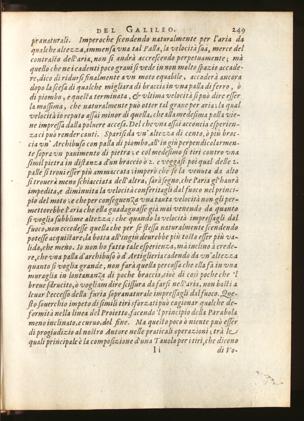 DEL GALILEO. 249
pranaturali. Imperoche scendendo naturalmente per l'aria da
qualche altezza, immensa vna tal Palla, la velocità sua, merce del
contrasto dell'aria, non si andrà accrescendo perpetuamente; mà
quello che ne i cadenti poco graui si vede in non molto spazio accade-
re, dico di ridursi finalmente a vn moto equabile, accaderà ancora
dopo la scesa di qualche migliara di braccia in vna palla di ferro, ò
di piombo, e quella terminata, & vltima velocità si può dire esser
la massima, che naturalmente può otter tal graue per aria: la qual
velocità io reputo assai minor di quella, che alla medesima palla vie-
ne impressa dalla poluere accesa. Del che vna assai acconcia esperien-
za ci può render cauti. Sparisi da vn' altezza di cento, ò più brac-
cia vn' Archibuso con palla di piombo, all' in giù perpendicolarmen-
te sopra vn pauimento di pietra; e col medesimo si tiri contro vna
simil pietra in distanza d'vn braccio ò 2. e veggasi poi qual delle 2.
palle si troui esser più ammaccata: imperò che se la venuta da alto
si trouerà meno schiacciata dell'altra, sarà segno, che l'aria gl'hauerà
impedita, e diminuita la velocità conferitagli dal fuoco nel princi-
pio del moto: e che per conseguenza vna tanta velocità non gli per-
metterebbe l'aria che ella guadagnasse già mai venendo da quanto
si voglia sublime altezza: che quando la velocità impressagli dal
fuoco, non eccedesse quella che per se stessa naturalmente scendendo
potesse acquistare, la botta all'ingiù deurebbe più tosto esser più va-
lida, che meno. Io non hò fatto tale esperienza, mà inclino à crede-
re, che vna palla d'archibuso ò d'Artiglieria cadendo da vn'altezza
quanto si voglia grande, non farà quella percossa che ella fà in vna
muraglia in lontananza di poche braccia, cioè di così poche che 'l
breue sdrucito, ò vogliam dire scissura da farsi nell' aria, non basti a
leuar l'eccesso della furia sopranaturale impressagli dal fuoco. Que-
sto souerchio impeto di simili tiri sforzati può cagionar qualche de-
formità nella linea del Proietto, facendo 'l principio della Parabola
meno inclinato, e curuo, del fine. Ma questo poco ò niente può esser
di progiudizio al nostro Autore nelle praticali operazioni: trà le
quali principale è la composizione d'vna Tauola per i tiri, che dicono
I i di Vo-